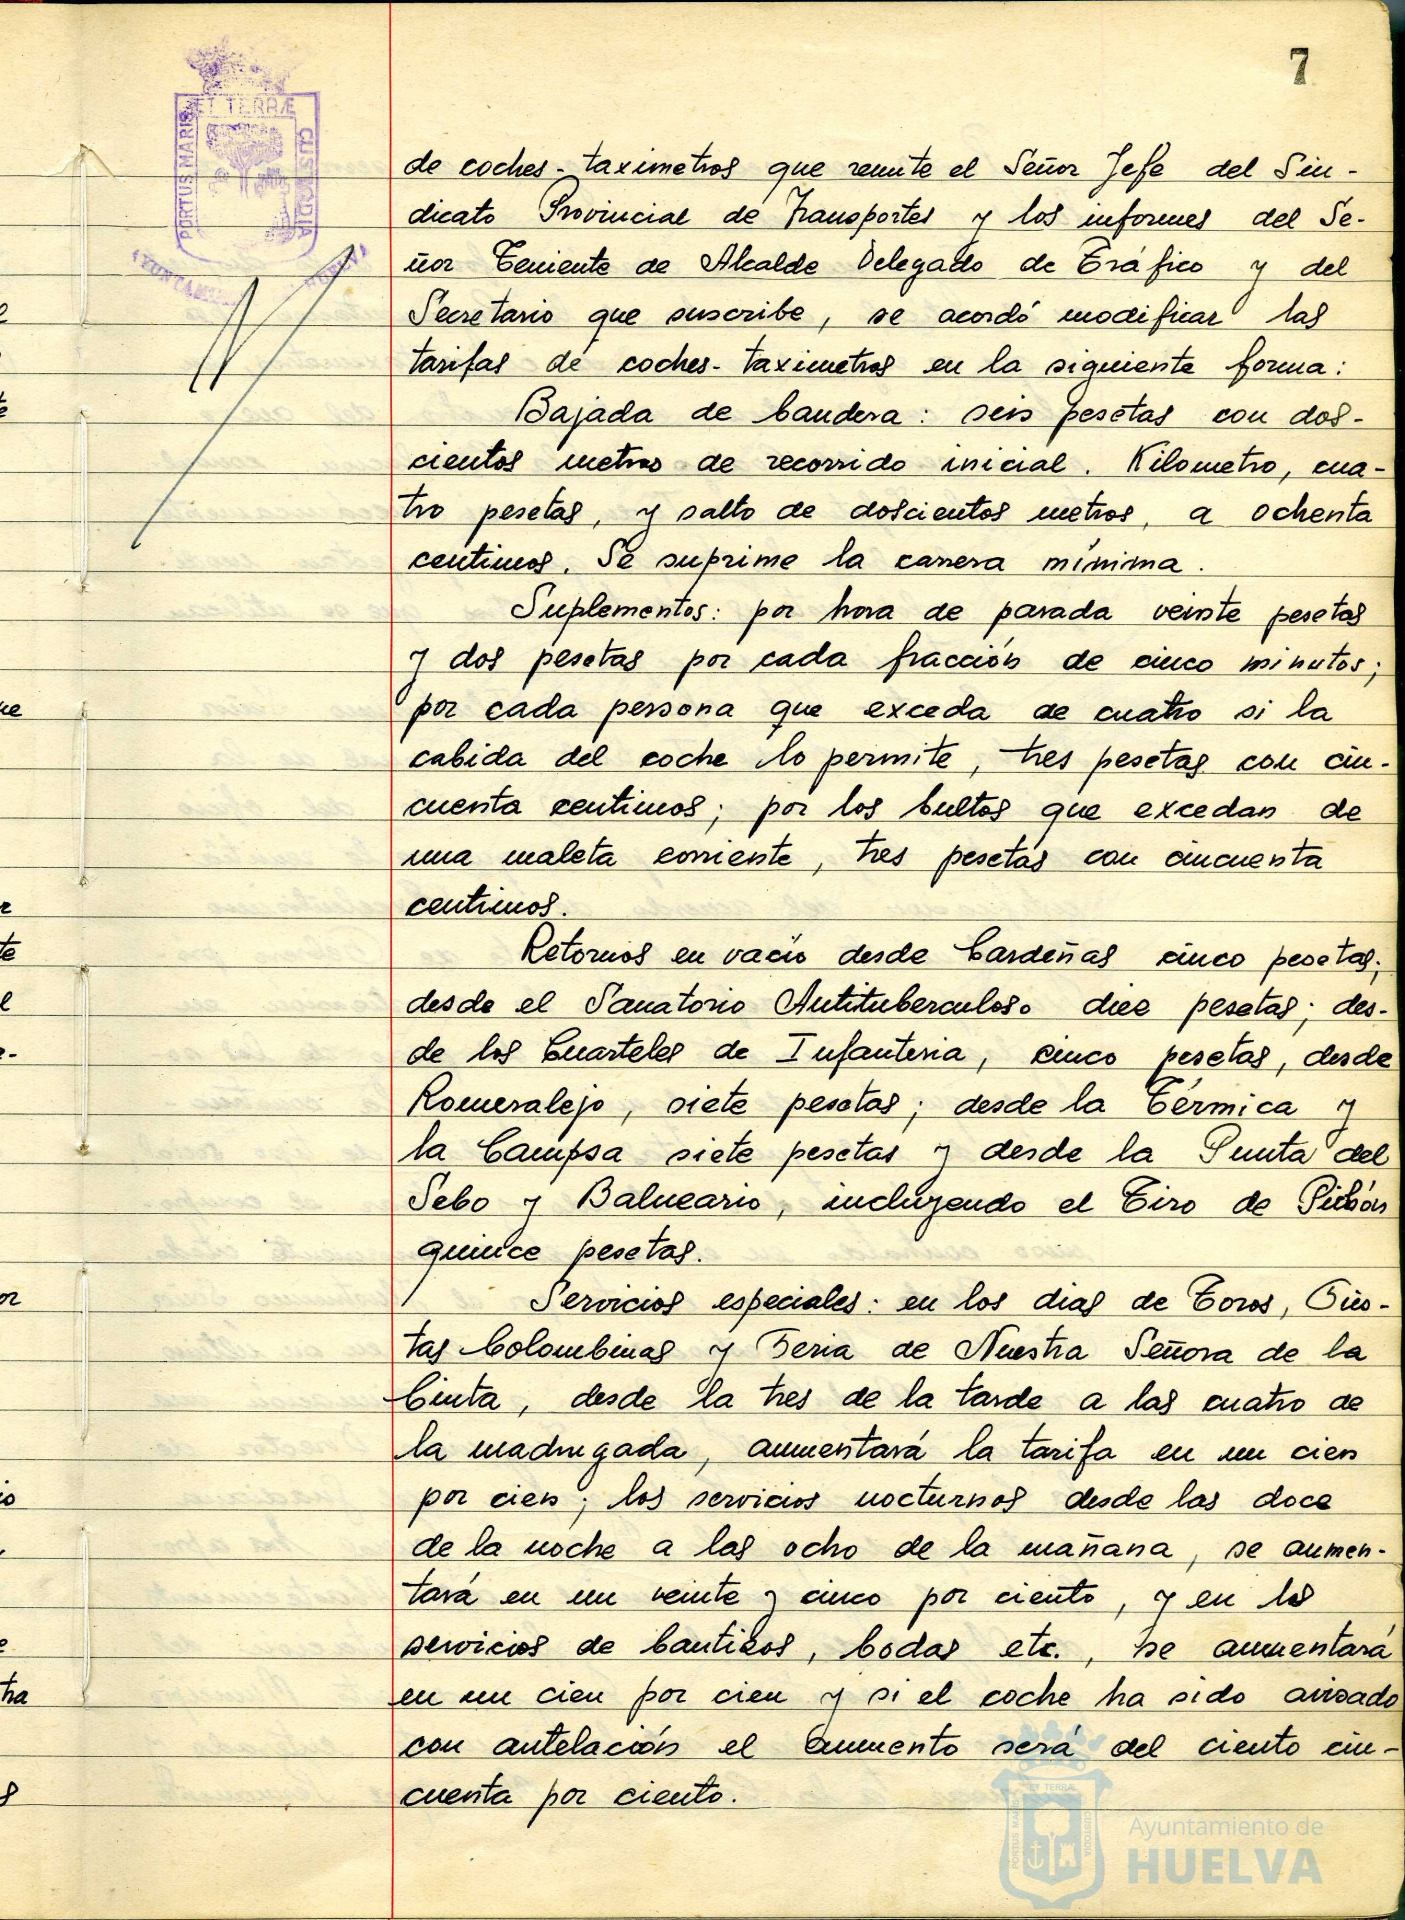 7
PORTUS MARIS ET TERRÆ CUSTODIA
AYUNTAMI HUELVA
de coches-taximetros que remite el Señor Jefe del Sin-
dicato Provincial de Transportes y los informes del Se-
ñor Teniente de Alcalde Delegado de Tráfico y del
Secretario que suscribe, se acordó modificar las
tarifas de coches-taximetros en la siguiente forma:
Bajada de bandera: seis pesetas con dos-
cientos metros de recorrido inicial. Kilometro, cua-
tro pesetas, y salto de doscientos metros, a ochenta
centimos. Se suprime la carrera mínima.
Suplementos: por hora de parada veinte pesetas
y dos pesetas por cada fracción de cinco minutos;
por cada persona que exceda de cuatro si la
cabida del coche lo permite, tres pesetas con cin-
cuenta centimos; por los bultos que excedan de
una maleta corriente, tres pesetas con cincuenta
centimos.
Retornos en vacío desde Cardeñas cinco pesetas;
desde el Sanatorio Antituberculoso diez pesetas; des-
de los Cuarteles de Infanteria, cinco pesetas, desde
Romeralejo, siete pesetas; desde la Térmica y
la Campsa siete pesetas y desde la Punta del
Sebo y Balneario, incluyendo el Tiro de Pichón
quince pesetas.
Servicios especiales: en los dias de Toros, Fies-
tas Colombinas y Feria de Nuestra Señora de la
Cinta, desde la tres de la tarde a las cuatro de
la madrugada, aumentará la tarifa en un cien
por cien; los servicios nocturnos desde las doce
de la noche a las ocho de la mañana, se aumen-
tará en un veinte y cinco por ciento, y en los
servicios de bautizos, bodas etc., se aumentará
en un cien por cien y si el coche ha sido avisado
con antelación el aumento será del ciento cin-
cuenta por ciento.
Ayuntamiento de
HUELVA